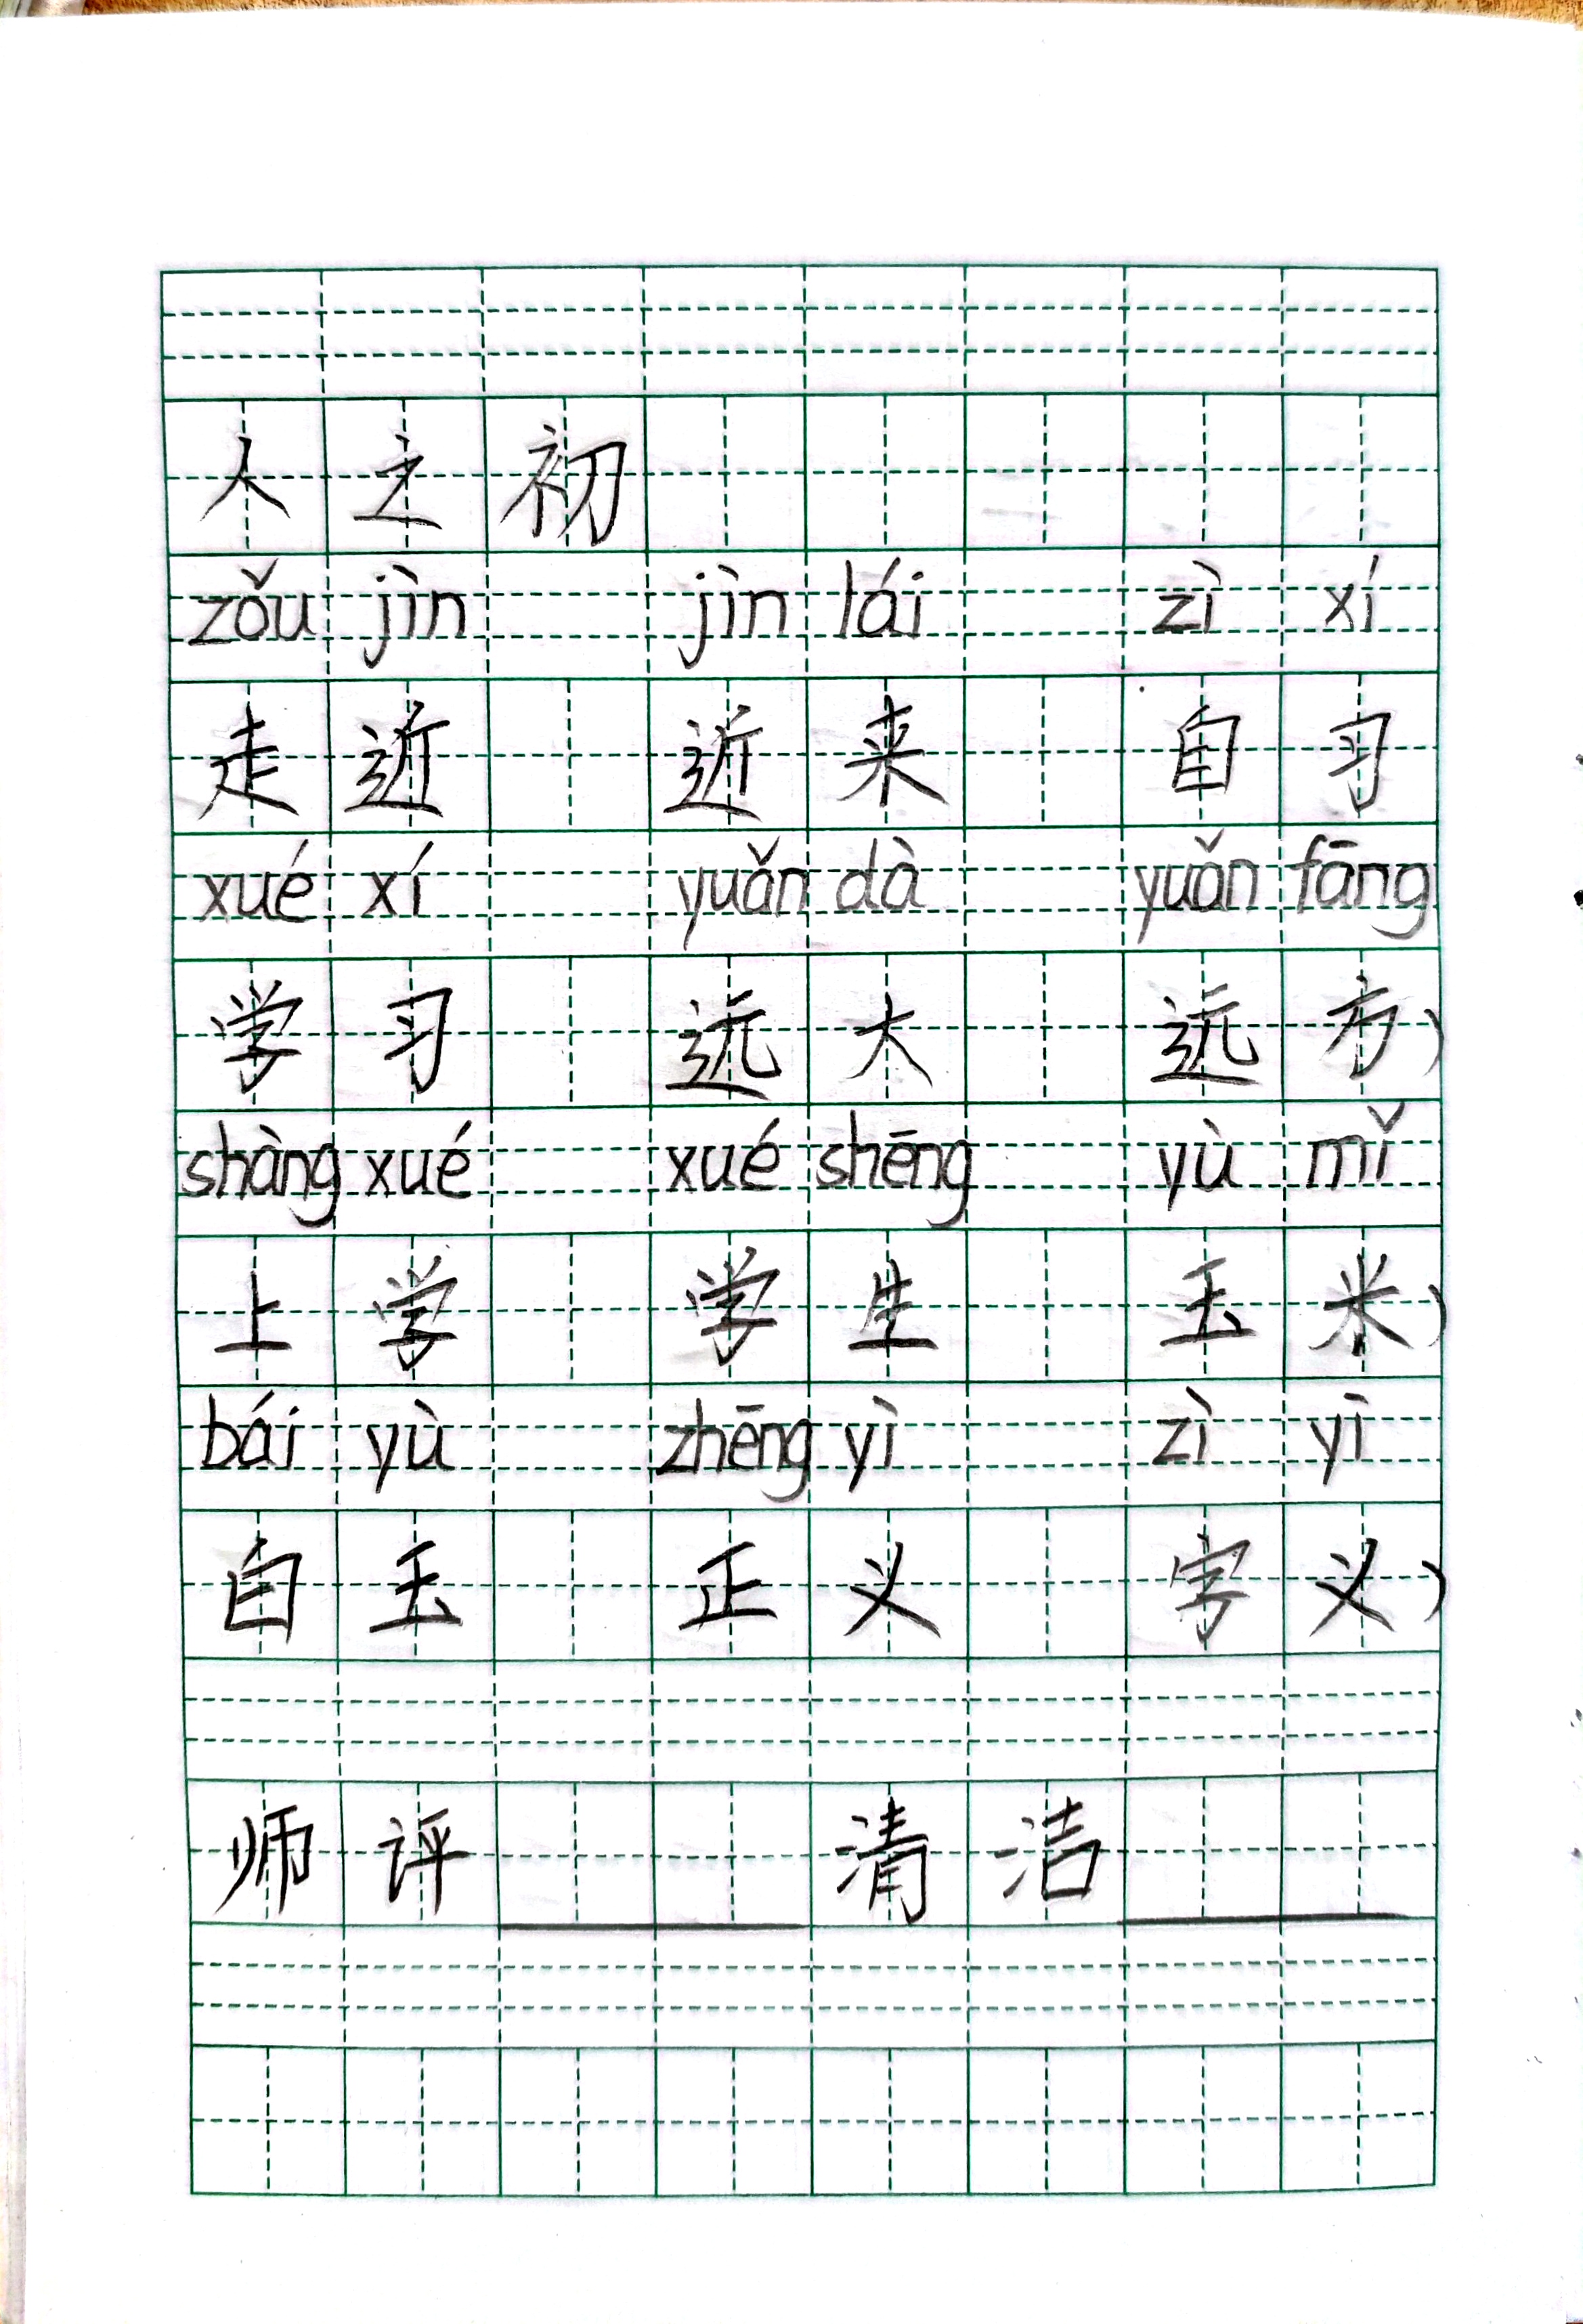 人之初
zǒu jìn jìn lái zì xí
走近 近来 自习
xué xí yuǎn dà yuǎn fāng
学习 远大 远方)
shàng xué xué shēng yù mǐ
上学 学生 玉米)
bái yù zhēng yì zì yì
白玉 正义 字义)
师评 清洁